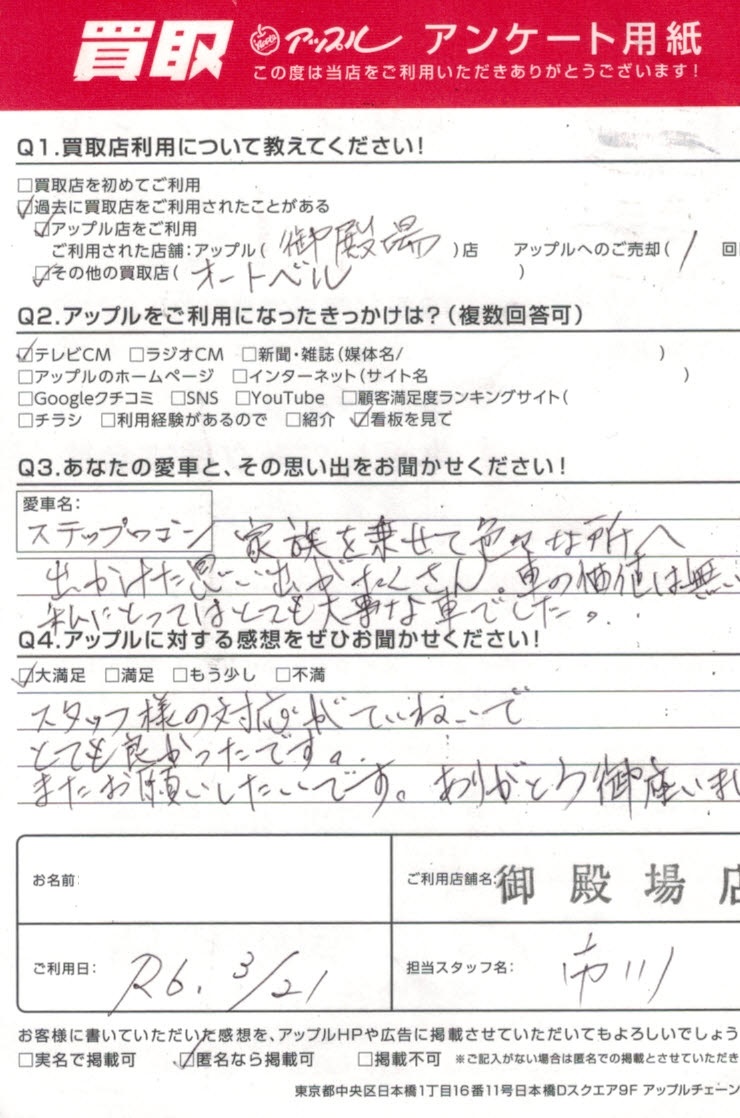 買取 アップル アンケート用紙
この度は当店をご利用いただきありがとうございます!
Q1.買取店利用について教えてください!
□買取店を初めてご利用
☑過去に買取店をご利用されたことがある
☑アップル店をご利用
ご利用された店舗:アップル( 御殿場 )店 アップルへのご売却( 1 回
☑その他の買取店( オートベル )
Q2.アップルをご利用になったきっかけは?(複数回答可)
☑テレビCM □ラジオCM □新聞・雑誌(媒体名/ )
□アップルのホームページ □インターネット(サイト名 )
□Googleクチコミ □SNS □YouTube □顧客満足度ランキングサイト(
□チラシ □利用経験があるので □紹介 ☑看板を見て
Q3.あなたの愛車と、その思い出をお聞かせください!
愛車名:
ステップワゴン 家族を乗せて色々な所へ
出かけた思い出がたくさん。車の価値は無い
私にとってはとても大事な車でした。
Q4.アップルに対する感想をぜひお聞かせください!
☑大満足 □満足 □もう少し □不満
スタッフ様の対応がていねいで
とても良かったです。
またお願いしたいです。ありがとう御座いまし
お名前: ご利用店舗名: 御殿場店
ご利用日: R6. 3/21 担当スタッフ名: 市川
お客様に書いていただいた感想を、アップルHPや広告に掲載させていただいてもよろしいでしょう
□実名で掲載可 ☑匿名なら掲載可 □掲載不可 ※ご記入がない場合は匿名での掲載とさせていただき
東京都中央区日本橋1丁目16番11号日本橋Dスクエア9F アップルチェーン